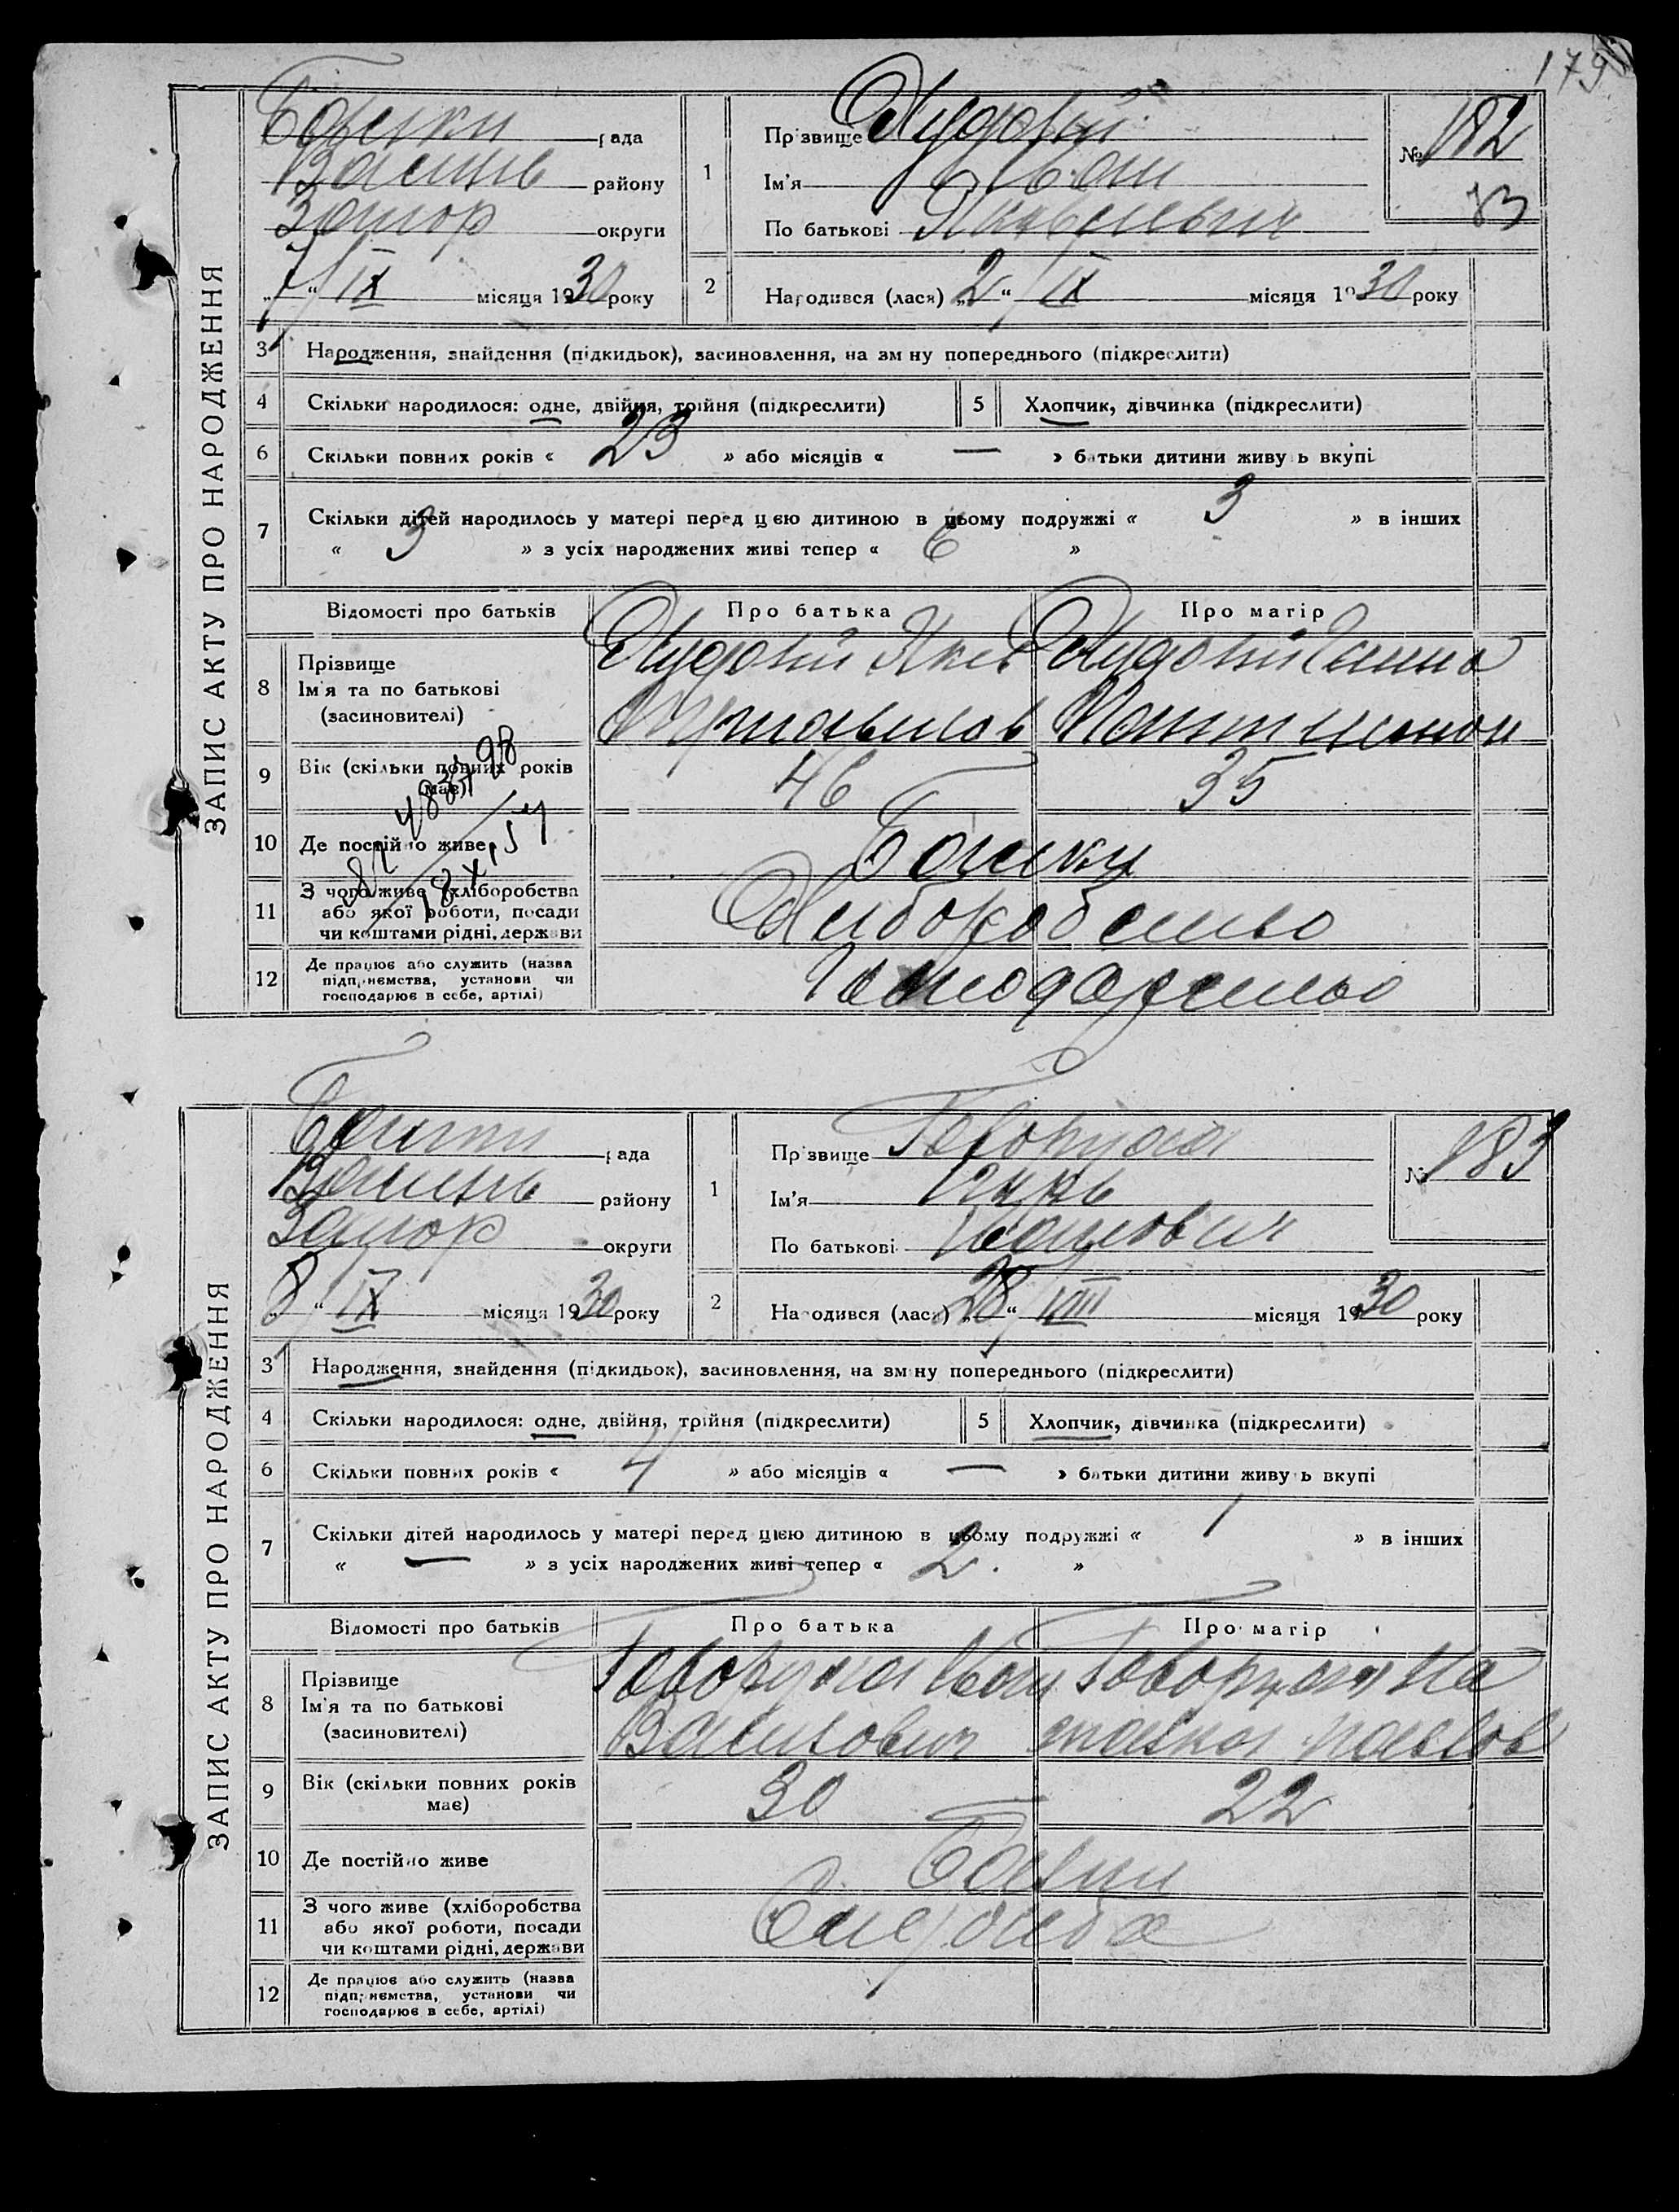 179
ЗАПИС АКТУ ПРО НАРОДЖЕННЯ
рада
Василь району
Запор округи
7/IX місяця 1930 року
1
Прізвище Худолій
Ім'я Іван
По батькові Яковлевич
№ 182
2
Народився (лася) „2“ IX місяця 1930 року
3 Народження, знайдення (підкидьок), засиновлення, на зміну попереднього (підкреслити)
4 Скільки народилося: одне, двійня, трійня (підкреслити) 5 Хлопчик, дівчинка (підкреслити)
6 Скільки повних років « 23 » або місяців « — » батьки дитини живуть вкупі
7 Скільки дітей народилось у матері перед цією дитиною в цьому подружжі « 3 » в інших
« 3 » з усіх народжених живі тепер « 6 »
Відомості про батьків Про батька Про матір
8 Прізвище
Ім'я та по батькові
(засиновителі)
Худолій Яков
Худолій Ганна
9 Вік (скільки повних років має) 46 35
10 Де постійно живе
11 З чого живе (хліборобства
або якої роботи, посади
чи коштами рідні, держави
Хлиборобство
12 Де працює або служить (назва
підприємства, установи чи
господарює в себе, артілі)
Господарство
ЗАПИС АКТУ ПРО НАРОДЖЕННЯ
рада
Василь району
Запор округи
„8“ IX місяця 1930 року
1
Прізвище Говоруха
Ім'я
По батькові Иванович
№ 183
2
Народився (лася) „28“ VIII місяця 1930 року
3 Народження, знайдення (підкидьок), засиновлення, на зміну попереднього (підкреслити)
4 Скільки народилося: одне, двійня, трійня (підкреслити) 5 Хлопчик, дівчинка (підкреслити)
6 Скільки повних років « 4 » або місяців « — » батьки дитини живуть вкупі
7 Скільки дітей народилось у матері перед цією дитиною в цьому подружжі « 1 » в інших
« — » з усіх народжених живі тепер « 2. »
Відомості про батьків Про батька Про матір
8 Прізвище
Ім'я та по батькові
(засиновителі)
Говоруха Иван
Василович
Говоруха На
талка Павлов
9 Вік (скільки повних років
має) 30 22
10 Де постійно живе
11 З чого живе (хліборобства
або якої роботи, посади
чи коштами рідні, держави
12 Де працює або служить (назва
підприємства, установи чи
господарює в себе, артілі)